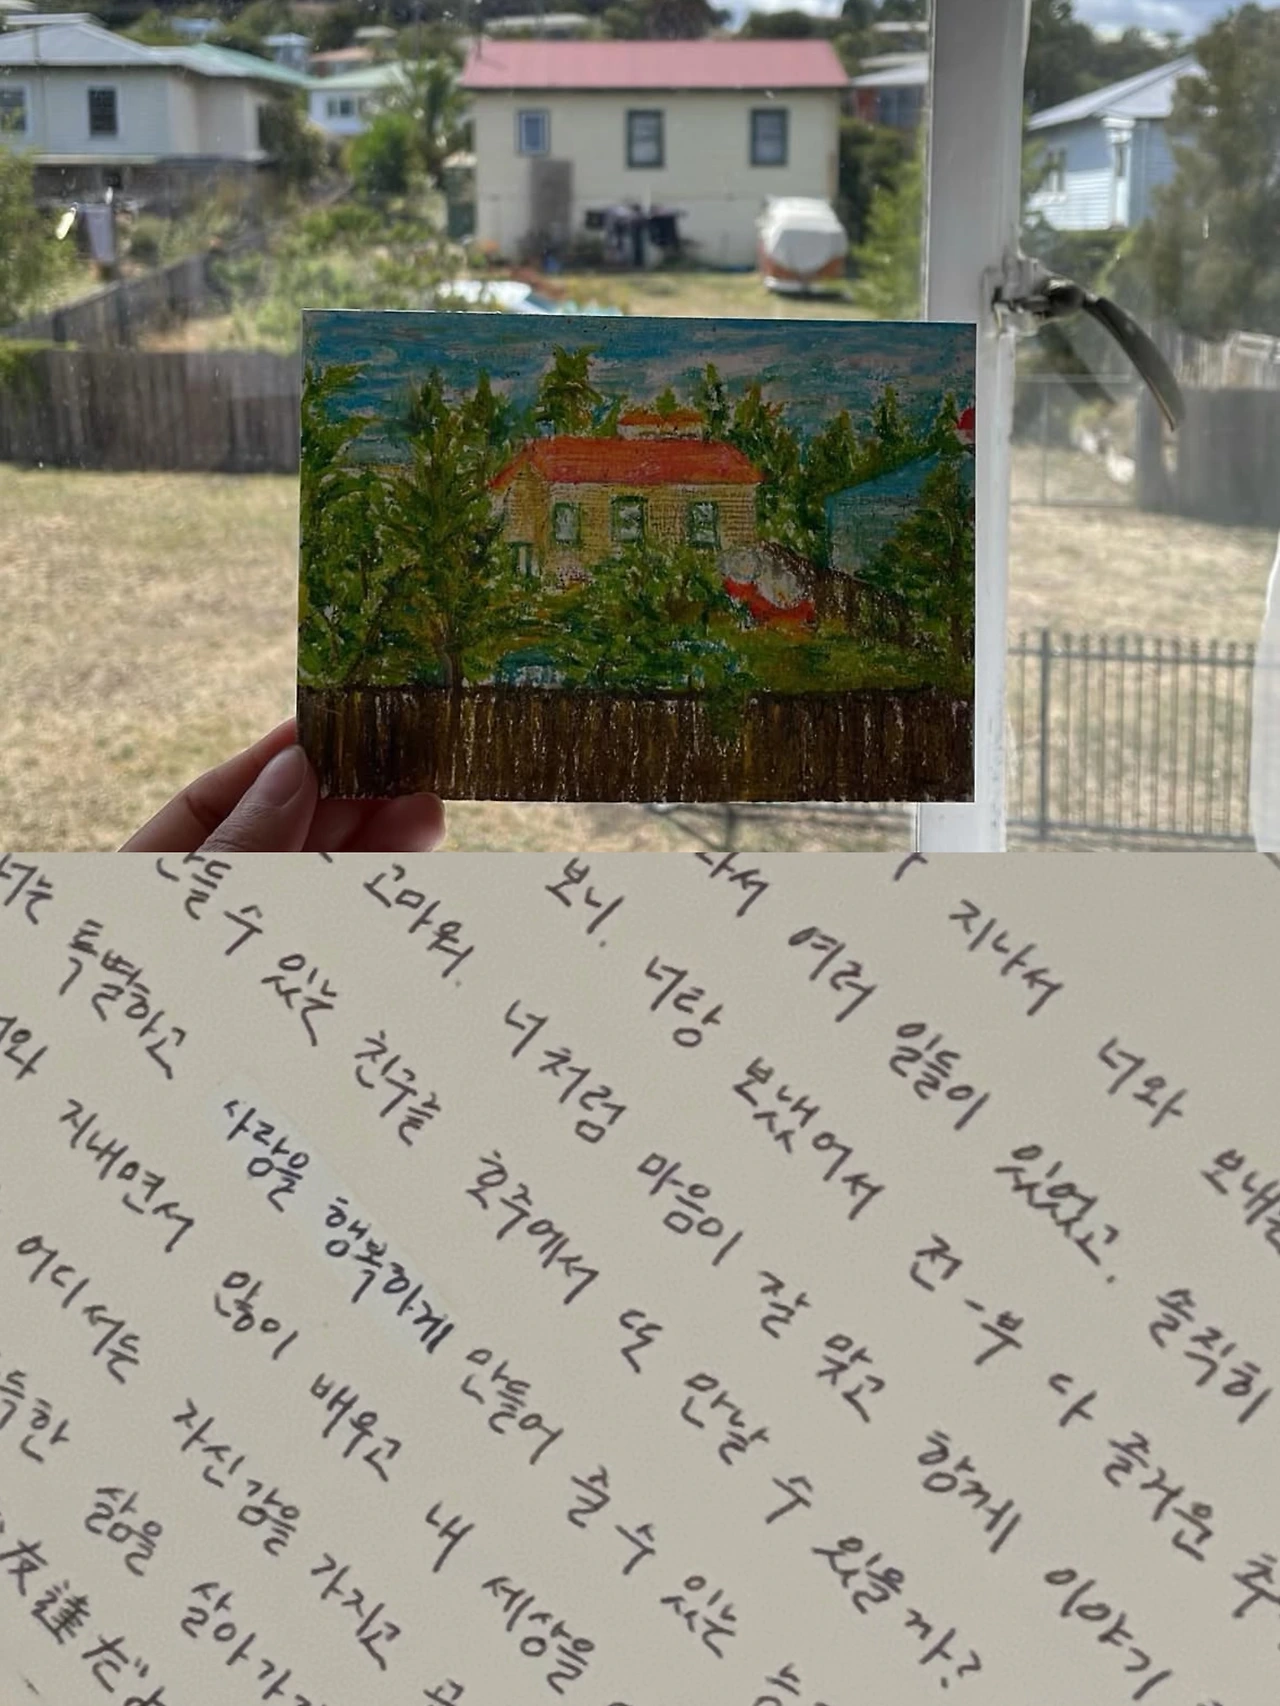 지나서 너와 보내는
여러 일들이 있었고, 솔직히
보니. 너랑 보냈어서 전-부 다 즐거운 추
고마워. 너처럼 마음이 잘 맞고 함께 이야기
만들 수 있는 친구를 호주에서 또 만날 수 있을까?
너는 특별하고 사랑을 행복하게 만들어 줄 수 있는
지내면서 많이 배우고 내 세상을
어디서든 자신감을 가지고
삶을 살아가
友達だ